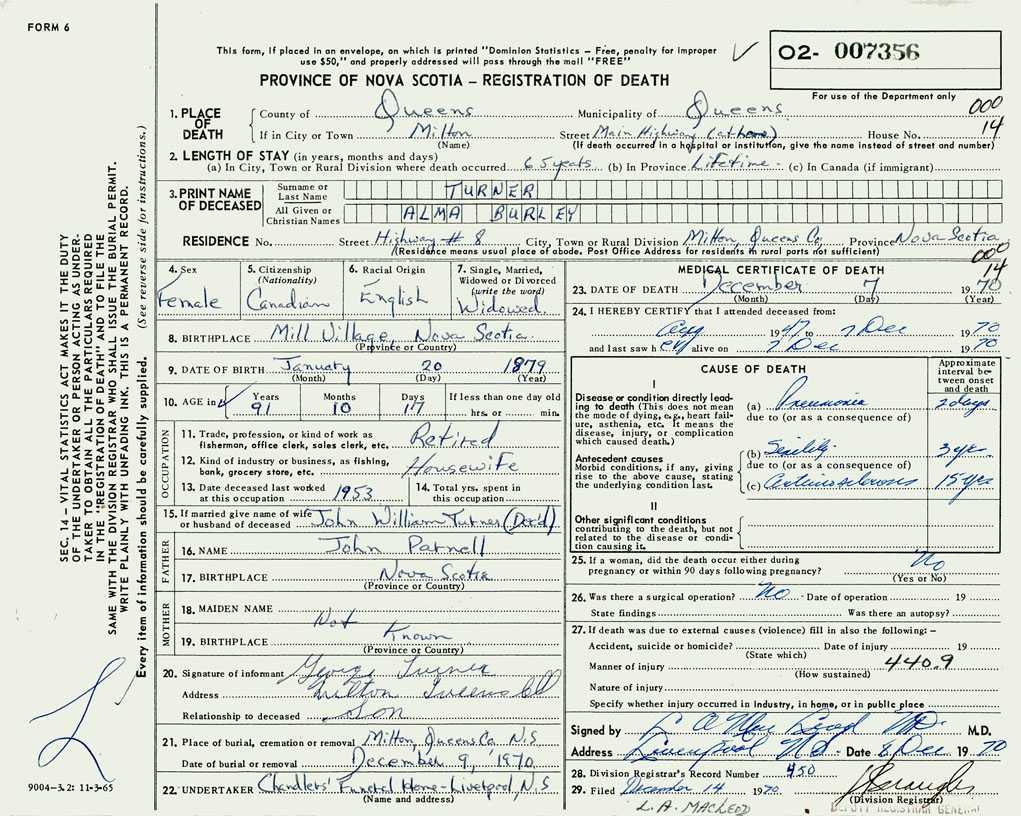 FORM 6
This form, if placed in an envelope, on which is printed "Dominion Statistics – Free, penalty for improper
use $50," and properly addressed will pass through the mail "FREE"
O2- 007356
PROVINCE OF NOVA SCOTIA – REGISTRATION OF DEATH
For use of the Department only
000
14
1. PLACE OF DEATH County of Queens Municipality of Queens
If in City or Town Milton Street Main Highway (at home) House No.
(Name) (If death occurred in a hospital or institution, give the name instead of street and number)
2. LENGTH OF STAY (in years, months and days)
(a) In City, Town or Rural Division where death occurred 65 years (b) In Province Lifetime - (c) In Canada (if immigrant)
3. PRINT NAME OF DECEASED Surname or Last Name TURNER
All Given or Christian Names ALMA BURLEY
RESIDENCE No. Street Highway # 8 City, Town or Rural Division Milton, Queens Co. Province Nova Scotia
(Residence means usual place of abode. Post Office Address for residents in rural parts not sufficient)
000
14
4. Sex Female
5. Citizenship (Nationality) Canadian
6. Racial Origin English
7. Single, Married, Widowed or Divorced (write the word) Widowed
8. BIRTHPLACE Mill Village, Nova Scotia
(Province or Country)
9. DATE OF BIRTH January 20 1879
(Month) (Day) (Year)
10. AGE in Years Months Days If less than one day old
91 10 17 hrs. or min.
OCCUPATION
11. Trade, profession, or kind of work as fisherman, office clerk, sales clerk, etc. Retired
12. Kind of industry or business, as fishing, bank, grocery store, etc. Housewife
13. Date deceased last worked at this occupation 1953
14. Total yrs. spent in this occupation
15. If married give name of wife or husband of deceased John William Turner (Dec'd)
FATHER
16. NAME John Parnell
17. BIRTHPLACE Nova Scotia
(Province or Country)
MOTHER
18. MAIDEN NAME Not
19. BIRTHPLACE Known
(Province or Country)
20. Signature of informant George Turner
Address Milton Queens
Relationship to deceased Son
21. Place of burial, cremation or removal Milton, Queens Co. N.S
Date of burial or removal December 9, 1970
22. UNDERTAKER Chandlers' Funeral Home - Liverpool, N.S
(Name and address)
MEDICAL CERTIFICATE OF DEATH
23. DATE OF DEATH December 7 1970
(Month) (Day) (Year)
24. I HEREBY CERTIFY that I attended deceased from:
1947 to 7 Dec 1970
and last saw her alive on 7 Dec 1970
CAUSE OF DEATH
Approximate interval between onset and death
I
Disease or condition directly leading to death (This does not mean the mode of dying, e.g., heart failure, asthenia, etc. It means the disease, injury, or complication which caused death.)
(a) Pneumonia 2 days
due to (or as a consequence of)
Antecedent causes
Morbid conditions, if any, giving rise to the above cause, stating the underlying condition last.
(b) Senility 3 yrs
due to (or as a consequence of)
(c) Arteriosclerosis 15 yrs
II
Other significant conditions
contributing to the death, but not related to the disease or condition causing it.
25. If a woman, did the death occur either during pregnancy or within 90 days following pregnancy? No
(Yes or No)
26. Was there a surgical operation? No - Date of operation 19
State findings Was there an autopsy?
27. If death was due to external causes (violence) fill in also the following: –
Accident, suicide or homicide? Date of injury 19
(State which)
Manner of injury 440.9
(How sustained)
Nature of injury
Specify whether injury occurred in industry, in home, or in public place
Signed by L A MacLeod MD. M.D.
Address Liverpool N.S. Date 8 Dec 1970
28. Division Registrar's Record Number 450
29. Filed December 14 1970
(Division Registrar)
L.A. MACLEOD
DEPUTY REGISTRAR GENERAL
SEC. 14 – VITAL STATISTICS ACT MAKES IT THE DUTY
OF THE UNDERTAKER OR PERSON ACTING AS UNDER-
TAKER TO OBTAIN ALL THE PARTICULARS REQUIRED
IN THE "REGISTRATION OF DEATH" AND TO FILE THE
SAME WITH THE DIVISION REGISTRAR WHO SHALL ISSUE THE BURIAL PERMIT.
WRITE PLAINLY WITH UNFADING INK. THIS IS A PERMANENT RECORD.
Every item of information should be carefully supplied. (See reverse side for instructions.)
9004-3.2: 11-3-65